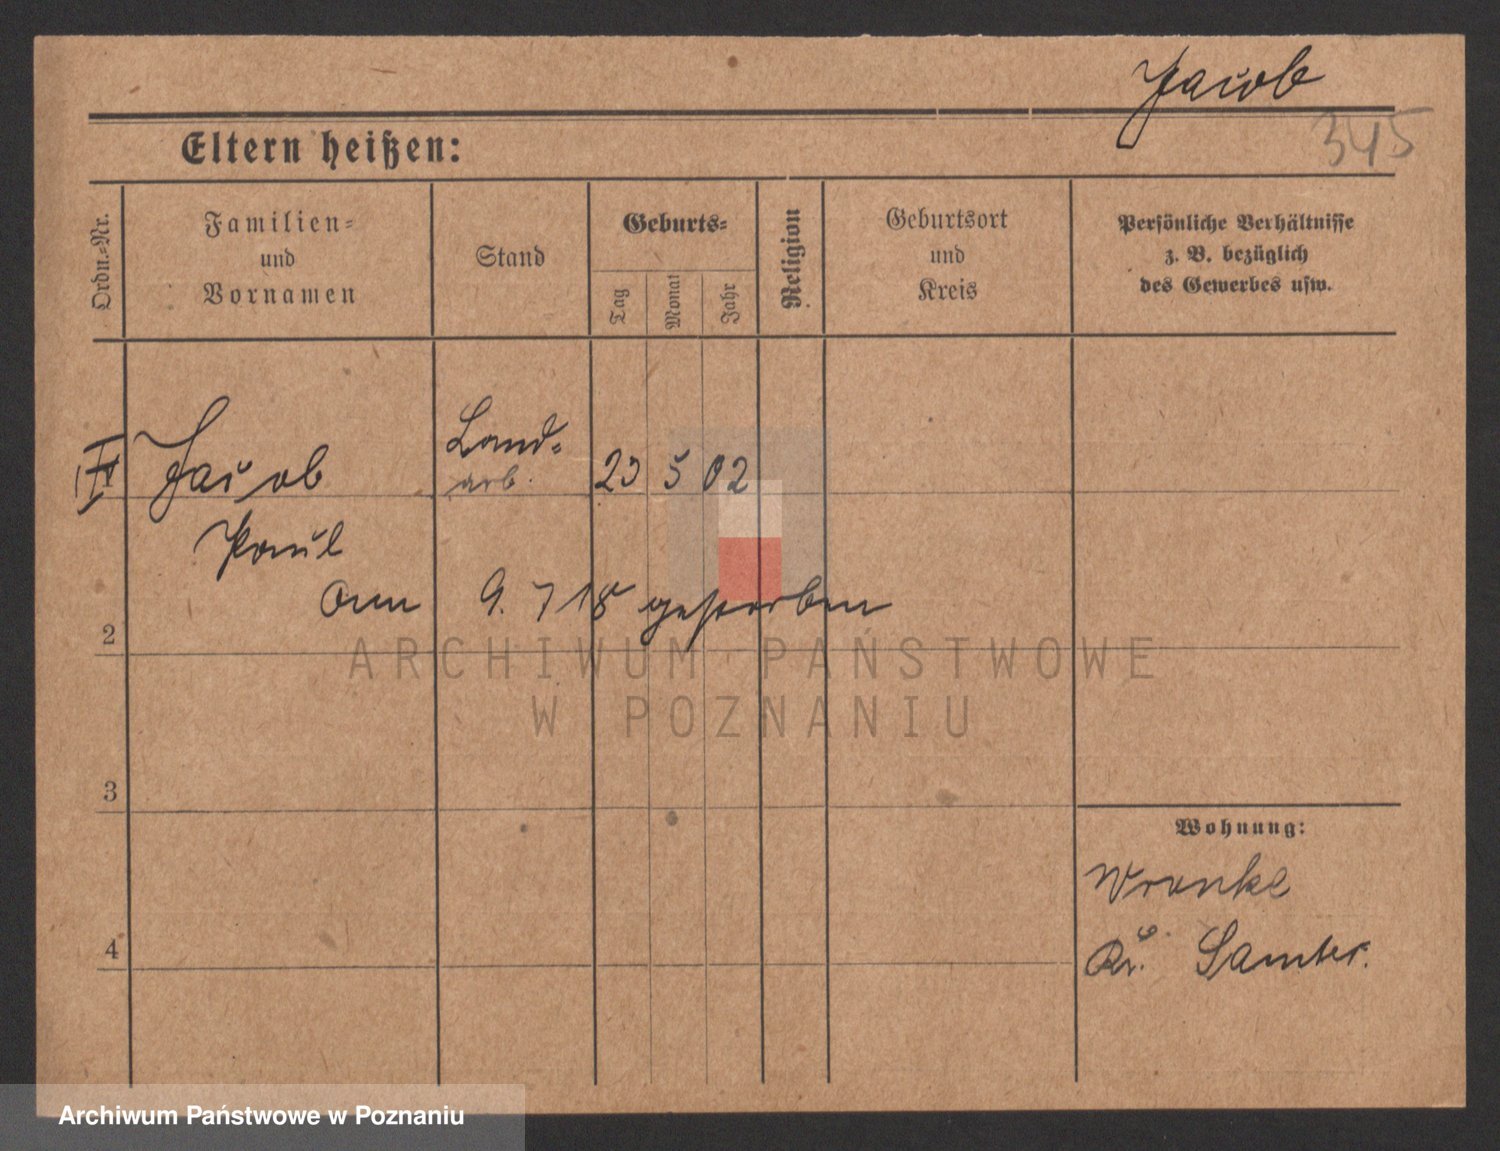 Jacob
345
Eltern heißen:
Ordn.-Nr.
Familien- und Vornamen
Stand
Geburts-
Tag
Monat
Jahr
Religion
Geburtsort und Kreis
Persönliche Verhältnisse
z. B. bezüglich
des Gewerbes usw.
Jacob
Land-
arb.
23 5 02
Paul
am 9. 7 18 gestorben
2
3
4
Wohnung:
Wronke
Kr. Samter.
ARCHIWUM PAŃSTWOWE
W POZNANIU
Archiwum Państwowe w Poznaniu